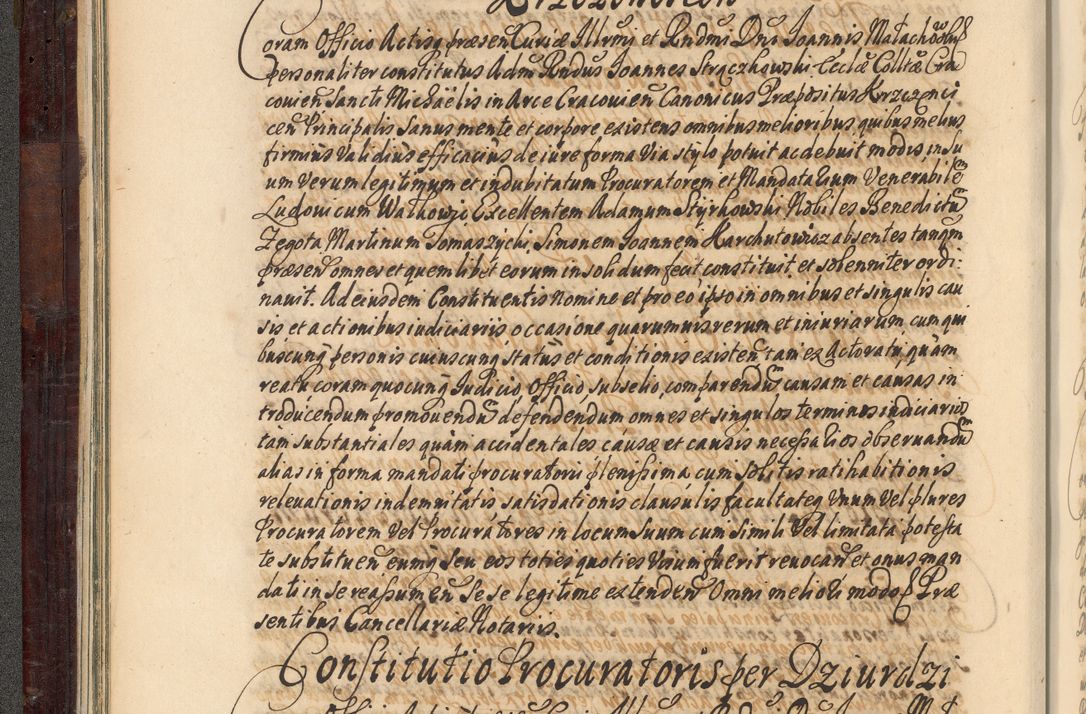 Coram Officio Actisq præsen Curiæ Illrmi et Rndmi Dni Joannis Małachowski
personaliter constitutus Adm Rndus Joannes Strączkowski Ecclæ Colltæ Cra
covien Sancti Michaëlis in Arce Cracovien Canonicus Præpositus Krzczonci
cen Principalis sanus mente et corpore existens omnibus melioribus quibus melius
firmius validius efficacius de iure forma via stylo potuit ac debuit modis, in su
um verum legitimum et indubitatum Procuratorem et Mandatarium Venerabilē
Ludovicum Walkowic Excellentem Adamum Styrkowski Nobiles Benedictū
Zegota Martinum Tomaszychi, Simonem Joannem Karchutowicz absentes tanqm
præsen omnes et quemlibet eorum in solidum fecit constituit, et solenniter ordi:
navit. Ad eiusdem Constituentis Nomine et pro eo ipso in omnibus et singulis cau
sis et actionibus iudiciariis occasione quarumvis rerum et iniuriarum cum qui
buscunq personis cuiuscunq status et conditionis existen tam ex Actoratu, quàm
reatu coram quocunq Judicio, Officio, subselio, comparendū causam et causas in
troducendum promovendū defendendum omnes et singulos terminos iudiciarios
tam substantiales quàm accidentales causæ et causis necessarios observandū
alias in forma mandati procuratorii plenissima cum solitis ratihabitionis
relevationis indemnitatis satisdationis clausulis facultateq unum vel plures
Procuratorem vel Procuratores in locum suum cum simili vel limitata potesta
te substituen eumq seu eos toties quoties visum fuerit revocan et onus man
dati in se reassumen Se se legitime extenden Omni meliori modo Præ
sentibus Cancellariæ Notariis.
Constitutio Procuratoris per Dziurdzi